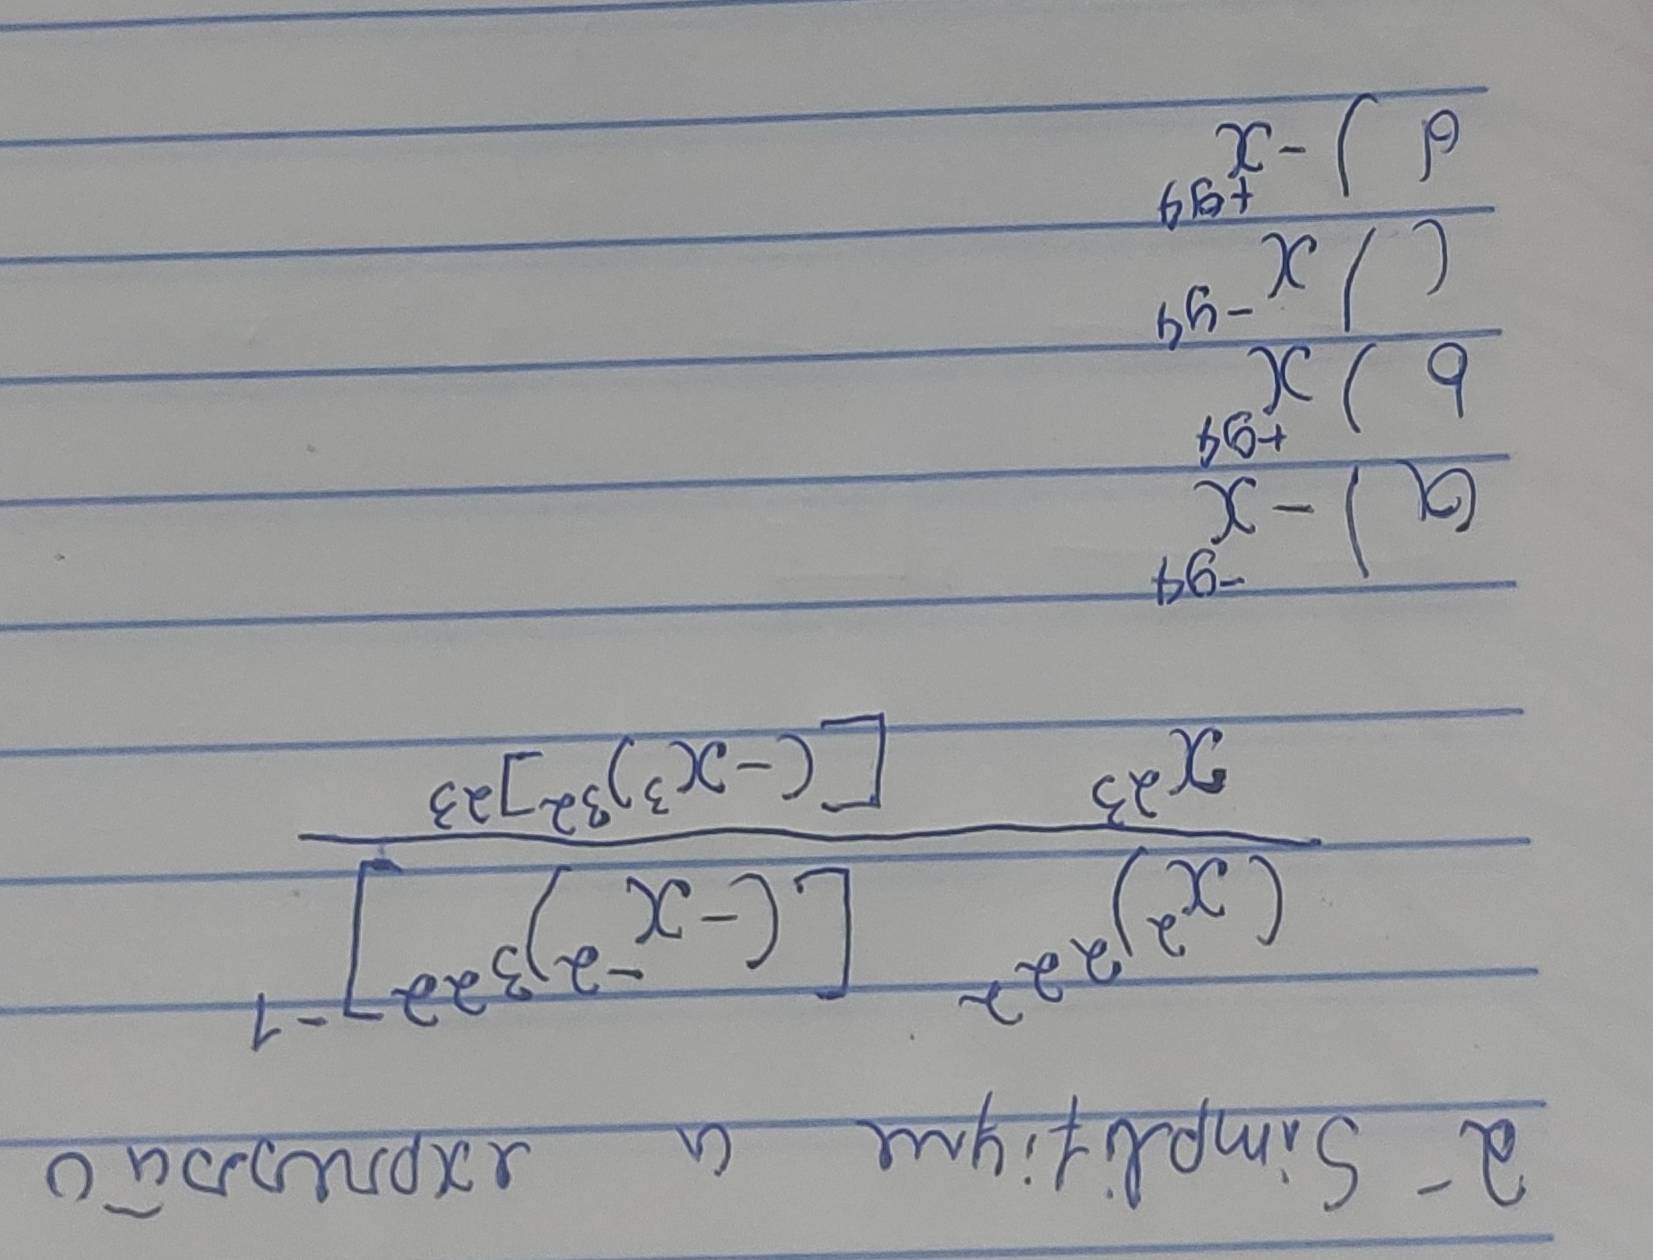 2- Simplifique a expressão
(x²)^2^2^2 [(-x^-2)^3^2^2]^-1
x^2^3 [(-x³)^3^2]^2^3
a) -x^-94
b) x^+94
c) x^-94
d) -x^+94